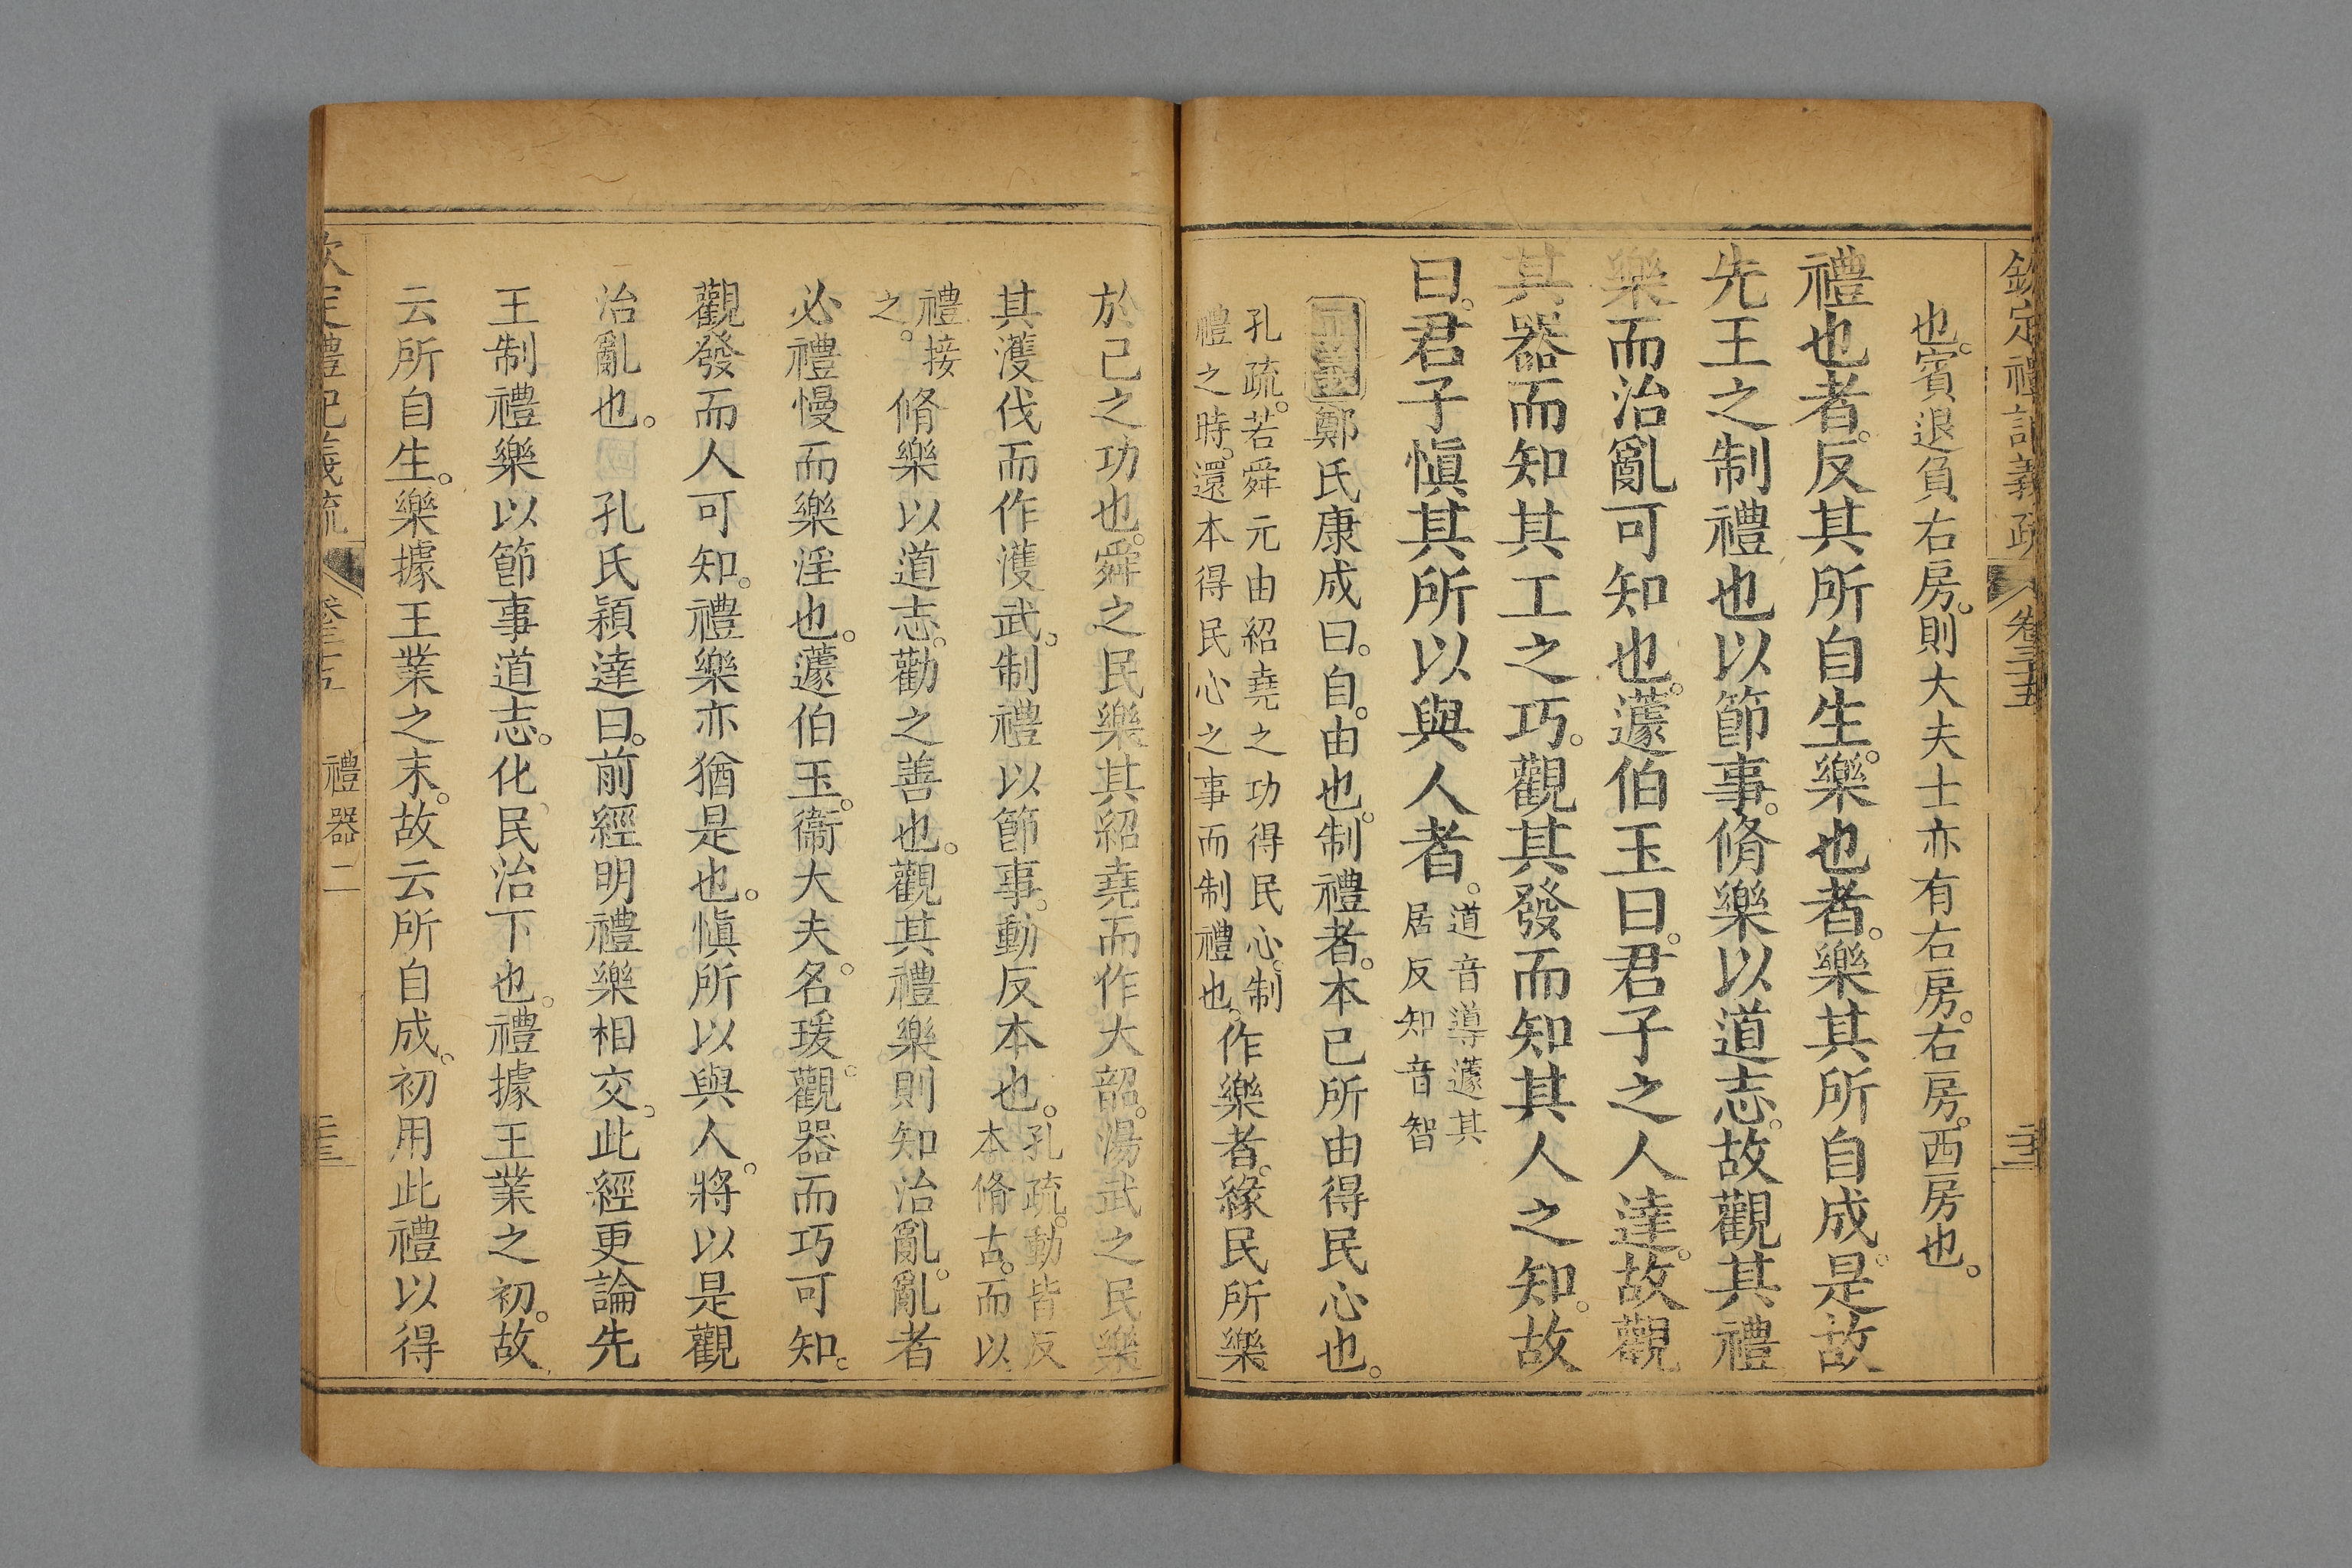 欽定禮記義疏 卷三十五
也。賓退負右房。則大夫士亦有右房。右房。西房也。
禮也者。反其所自生。樂也者。樂其所自成。是故
先王之制禮也以節事。脩樂以道志。故觀其禮
樂而治亂可知也。蘧伯玉曰。君子之人達。故觀
其器而知其工之巧。觀其發而知其人之知。故
曰。君子愼其所以與人者。
道音導蘧其
居反知音智
正義鄭氏康成曰。自。由也。制禮者。本己所由得民心也。
孔疏。若舜元由紹堯之功得民心。制
禮之時。還本得民心之事而制禮也。
作樂者。緣民所樂
於己之功也。舜之民樂其紹堯而作大韶。湯武之民樂
其濩伐而作濩武。制禮以節事。動反本也。
孔疏。動皆反
本脩古。而以
禮接
之。
脩樂以道志。勸之善也。觀其禮樂則知治亂。亂者
必禮慢而樂淫也。蘧伯玉。衞大夫。名瑗。觀器而巧可知。
觀發而人可知。禮樂亦猶是也。愼所以與人。將以是觀
治亂也。 孔氏穎達曰。前經明禮樂相交。此經更論先
王制禮樂以節事道志。化民治下也。禮據王業之初。故
云所自生。樂據王業之末。故云所自成。初用此禮以得
欽定禮記義疏 卷三十五 禮器二